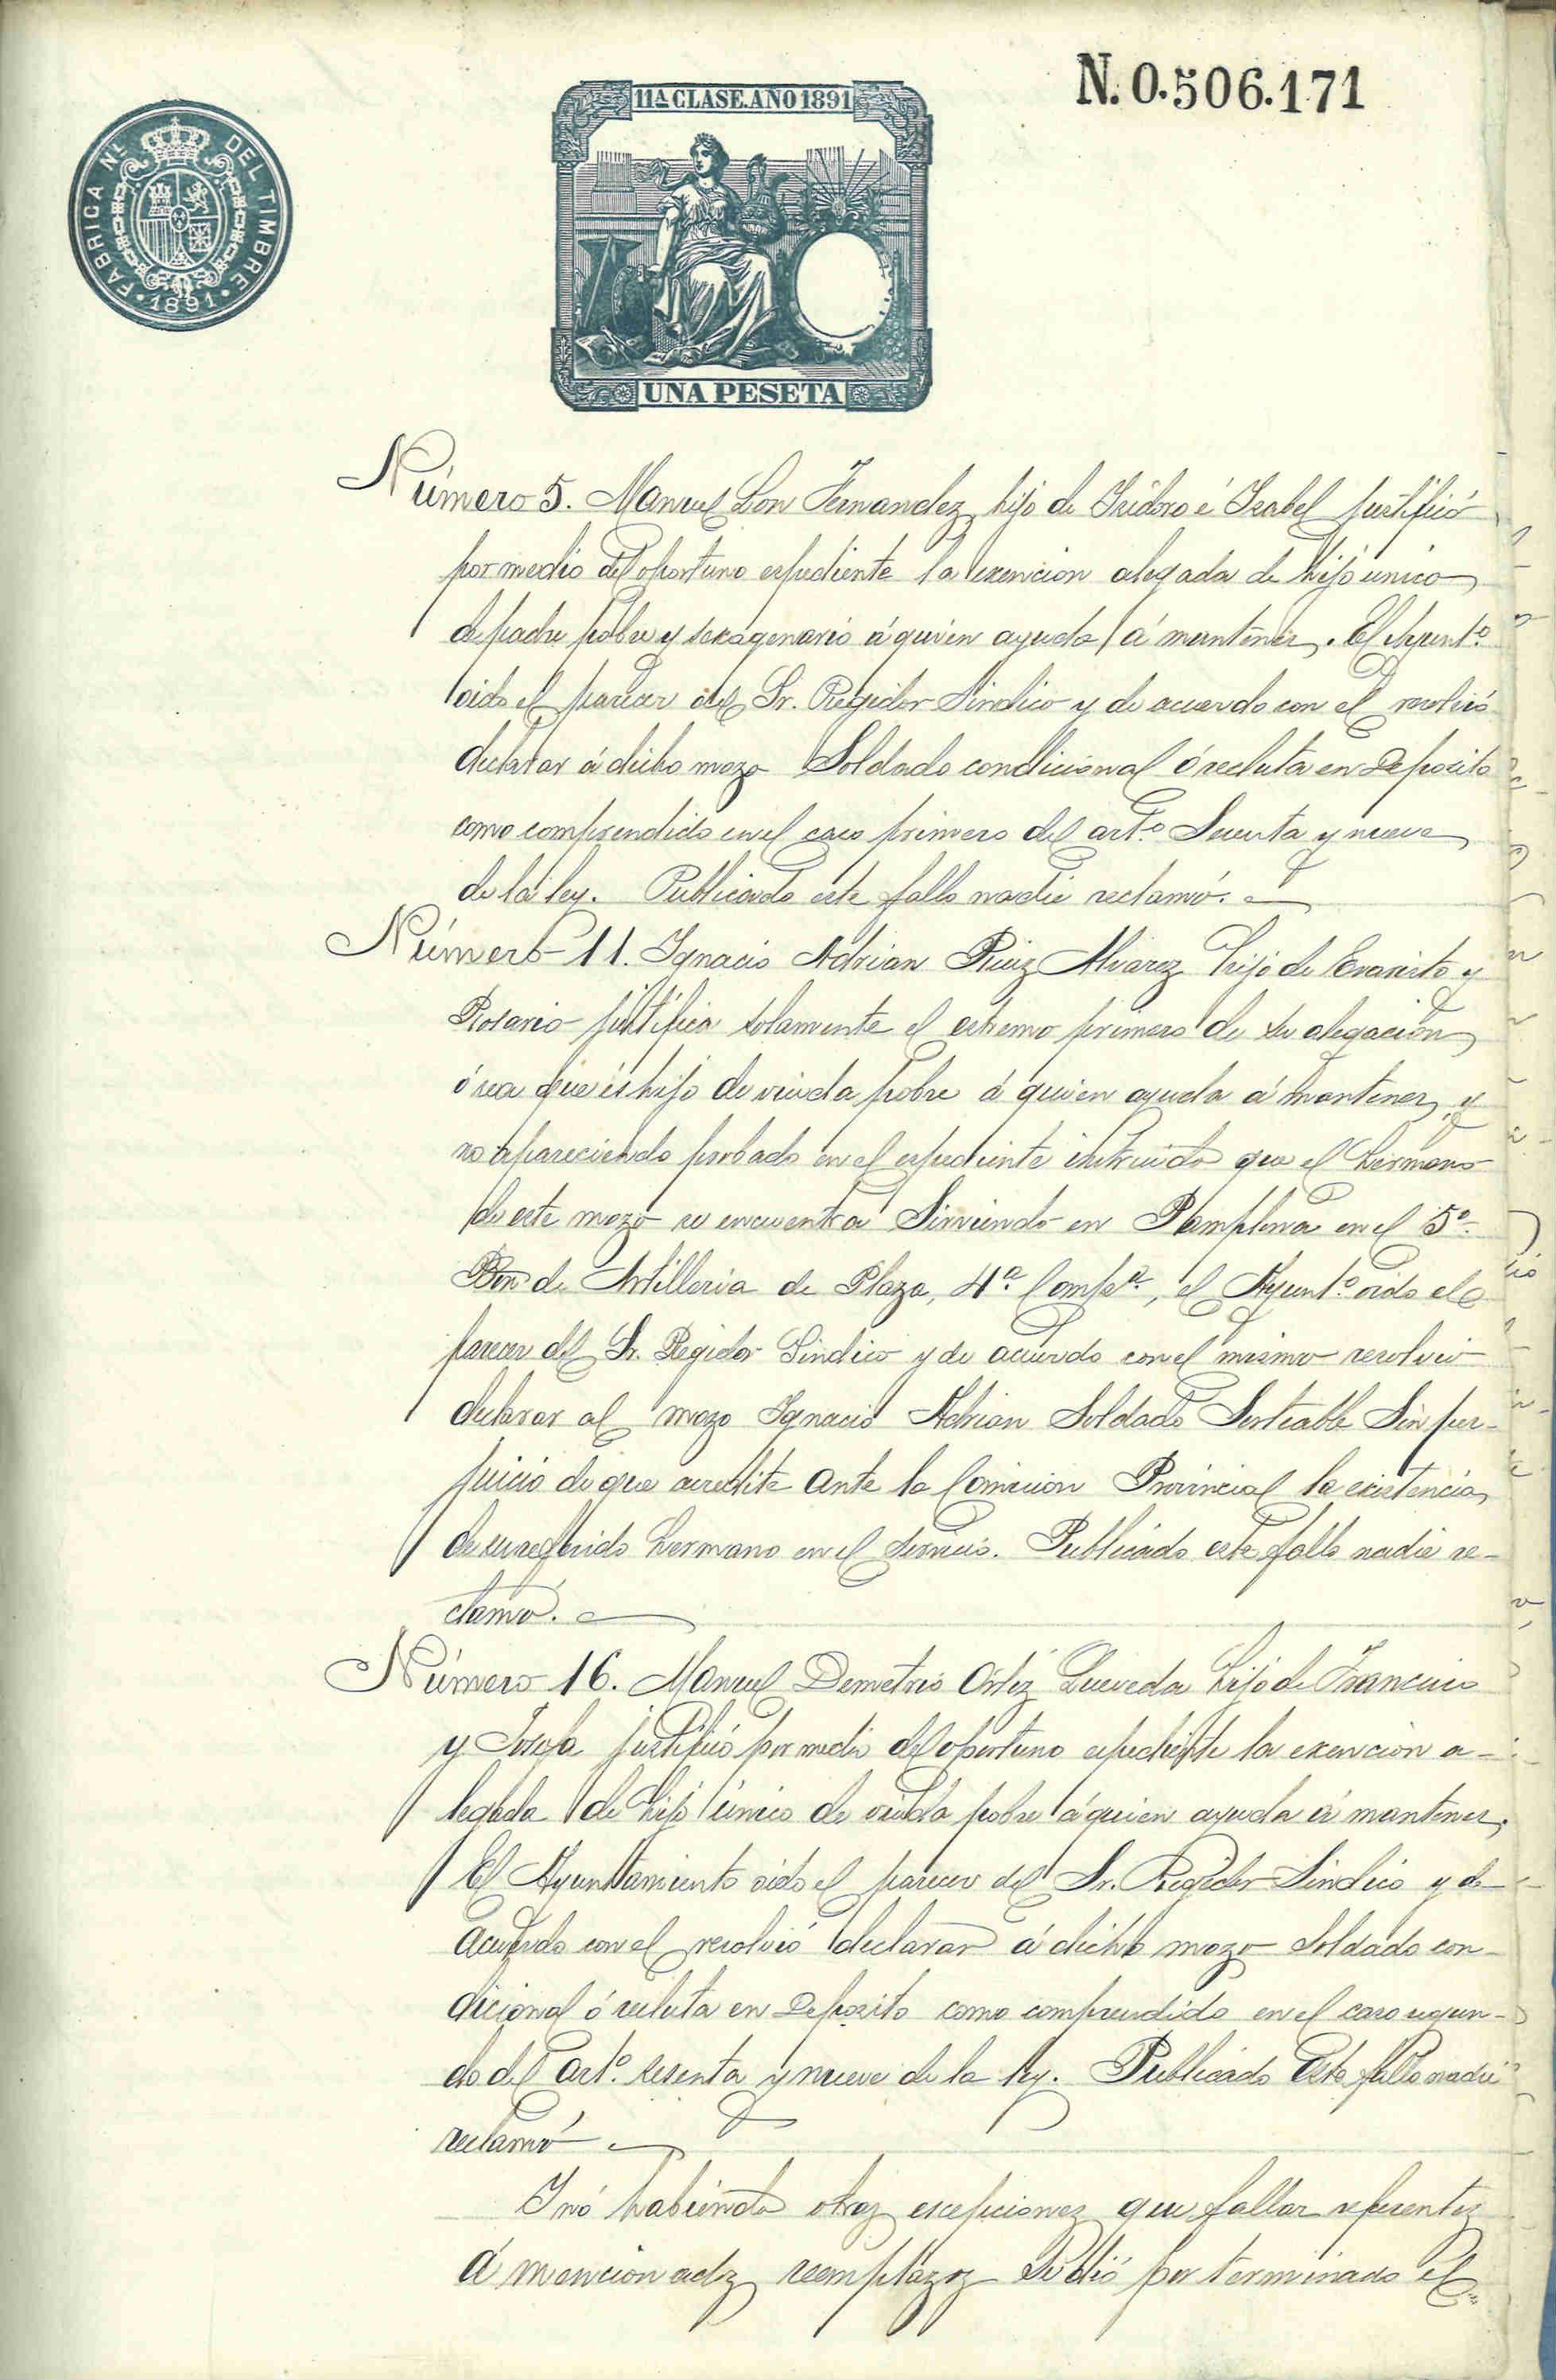 N. 0.506.171
11ª CLASE. AÑO 1891
FABRICA Nˡ DEL TIMBRE
· 1891 ·
UNA PESETA
Número 5. Manuel Lon Fernandez, hijo de Isidoro é Isabel justificó
por medio del oportuno espediente la exencion alegada de hijo unico
de padre pobre y sexagenario á quien ayuda á mantener. El Ayuntº
oido el parecer del Sr. Regidor Sindico y de acuerdo con el resolvió
declarar á dicho mozo Soldado condicional ó recluta en Deposito
como comprendido en el caso primero del artº Sesenta y nueve
de la ley. Publicado este fallo nadie reclamó.
Número 11. Ignacio Adrian Ruiz Alvarez hijo de Evaristo y
Rosario justifica solamente el estremo primero de su alegacion
ó sea que és hijo de viuda pobre á quien ayuda á mantener, y
no apareciendo probado en el espediente instruido que el hermano
de este mozo se encuentra Sirviendo en Pamplona en el 5º
Bon de Artilleria de Plaza, 4ª Compª, el Ayuntº oido el
parecer del Sr. Regidor Sindico y de acuerdo con el mismo resolvió
declarar al mozo Ignacio Adrian Soldado Sorteable Sin per-
juicio de que acredite ante la Comision Provincial la existencia
de su referido hermano en el servicio. Publicado este fallo nadie re-
clamó.
Número 16. Manuel Demetrio Ortiz Queveda hijo de Francisco
y Josefa justificó por medio del oportuno espediente la exencion a-
legada de hijo único de viuda pobre á quien ayuda á mantener.
El Ayuntamiento oido el parecer del Sr. Regidor Sindico y de
acuerdo con el resolvió declarar á dicho mozo Soldado con-
dicional ó recluta en Deposito como comprendido en el caso segun-
do del artº sesenta y nueve de la ley. Publicado este fallo nadie
reclamó
Y nó habiendo otras escepciones que fallar referentes
á mencionados reemplazos se dió por terminado el